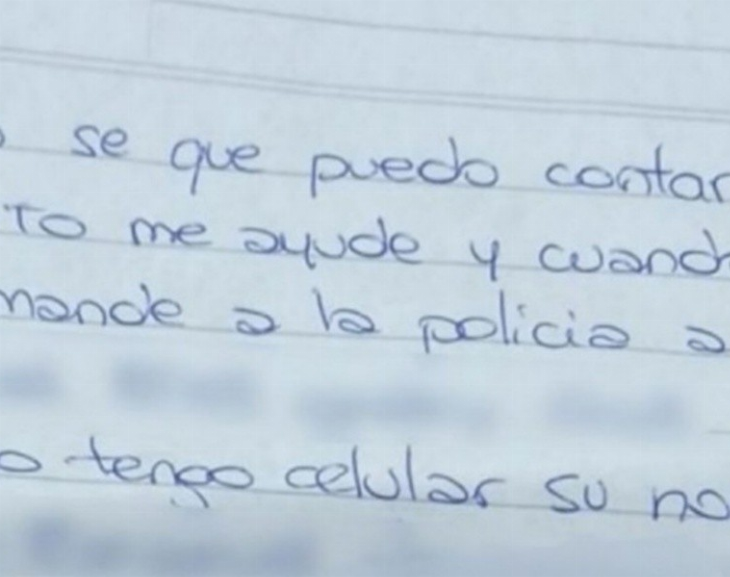 se que puedo contar
TO me ayude y cuand
mande a la policia a
o tengo celular su no